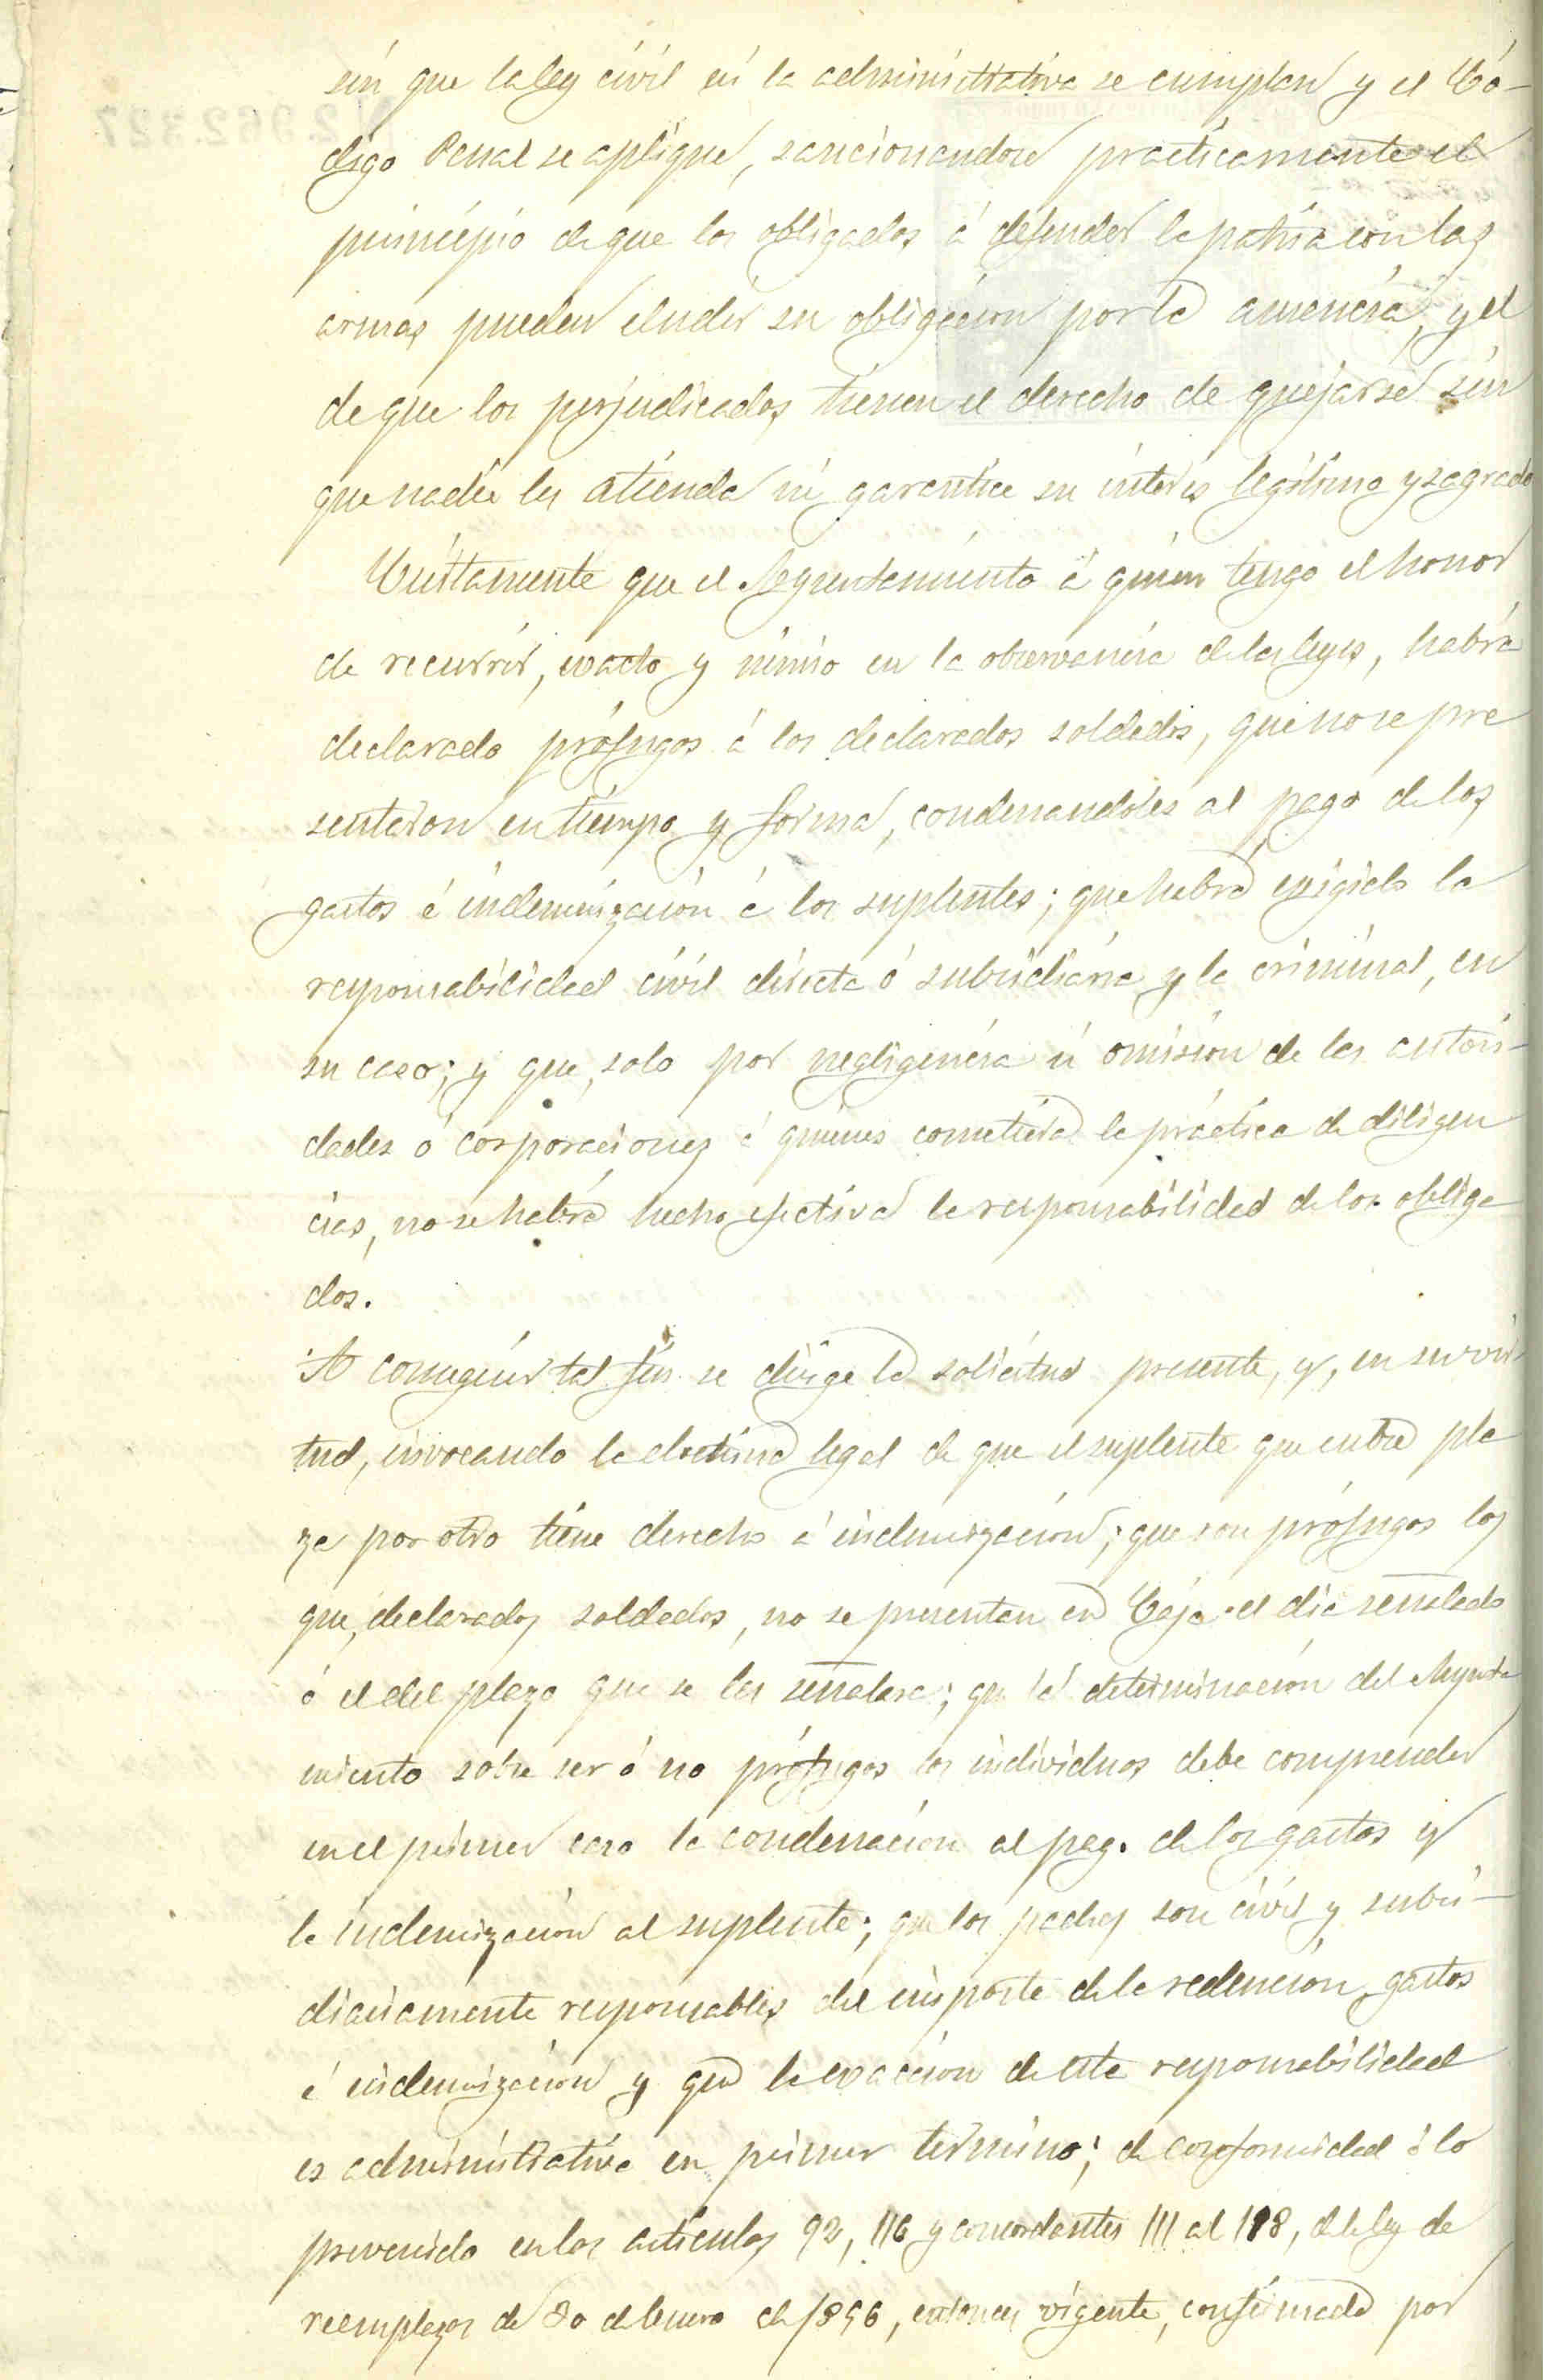 sin que la ley civil ni la administrativa se cumplan y el Có-
digo Penal se aplique, sancionandose practicamente el
principio de que los obligados á defender la patria con las
armas pueden eludir su obligacion por la ausencia, y el
de que los perjudicados tienen el derecho de quejarse sin
que nadie les atienda ni garantice su interés legítimo y sagrado
Ciertamente que el Ayuntamiento á quien tengo el honor
de recurrir, exacto y nimio en la observancia de las leyes, habrá
declarado prófugos á los declarados soldados, que no se pre
sentaron en tiempo y forma, condenandoles al pago de los
gastos é indemnización á los suplentes; que habrá exigido la
responsabilidad civil directa ó subsidiaria y la criminal, en
su caso; y que, solo por negligencia ú omisión de las autori-
dades ó corporaciones á quienes cometiera la práctica de diligen
cias, no se habrá hecho efectiva la responsabilidad de los obliga
dos.
A conseguir tal fin se dirige la solicitud presente, y, en su vir-
tud, invocando la doctrina legal de que el suplente que cubre pla
za por otro tiene derecho á indemnización; que son prófugos los
que, declarados soldados, no se presentan en Caja el dia señalado
ó el del plazo que se les señalara; que la determinación del Ayunta
miento sobre ser ó no prófugos los individuos debe comprender
en el primer caso la condenacion al pago de los gastos y
la indemnización al suplente; que los padres son civil y subsi-
diariamente responsables del importe de la redención, gastos
é indemnización y que la exaccion de esta responsabilidad
es administrativa en primer término; de conformidad á lo
prevenido en los artículos 92, 116 y concordantes 111 al 118, de la ley de
reemplazos de 30 de Enero de 1856, entonces vigente, confirmada por
N 2.962.327